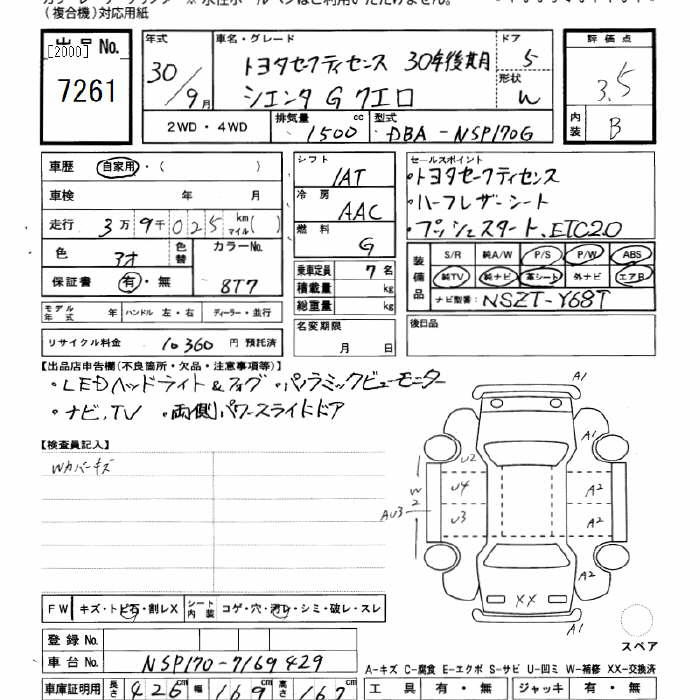 (複合機)対応用紙
出品No.
[2000]
7261
年式
30/9月
車名・グレード
トヨタセーフティセンス 30年後期
シエンタ G クエロ
ドア
5
形状
W
評価点
3.5
内装
B
2WD・4WD
排気量
1500cc
型式
DBA-NSP170G
車歴
自家用・( )
車検 年 月
走行 3万9千025 km マイル( )
色
アオ
色替
カラーNo.
8T7
保証書 有・無
モデル年式 年
ハンドル 左・右
ディーラー・並行
リサイクル料金 10360円 預託済
シフト
IAT
冷房
AAC
燃料
G
乗車定員 7名
積載量 kg
総重量 kg
名変期限
月 日
セールスポイント
・トヨタセーフティセンス
・ハーフレザーシート
・プッシュスタート、ETC2.0
装備品
S/R 純A/W P/S P/W ABS
純TV 純ナビ 革シート 外ナビ エアB
ナビ型番: NSZT-Y68T
後日品
【出品店申告欄(不良箇所・欠品・注意事項等)】
・LEDヘッドライト&フォグ・パノラミックビューモニター
・ナビ、TV ・両側パワースライドドア
【検査員記入】
Wカバーキズ
A1
A1
U2
U4
U3
W2
AU3
A2
A2
A2
XX
A1
スペア
FW キズ・トビ石・割レX
シート内装 コゲ・穴・汚レ・シミ・破レ・スレ
登録No.
車台No. NSP170-7169429
A-キズ C-腐食 E-エクボ S-サビ U-凹ミ W-補修 XX-交換済
車庫証明用 長さ 426cm 幅 169cm 高さ 167
工具 有・無 ジャッキ 有・無